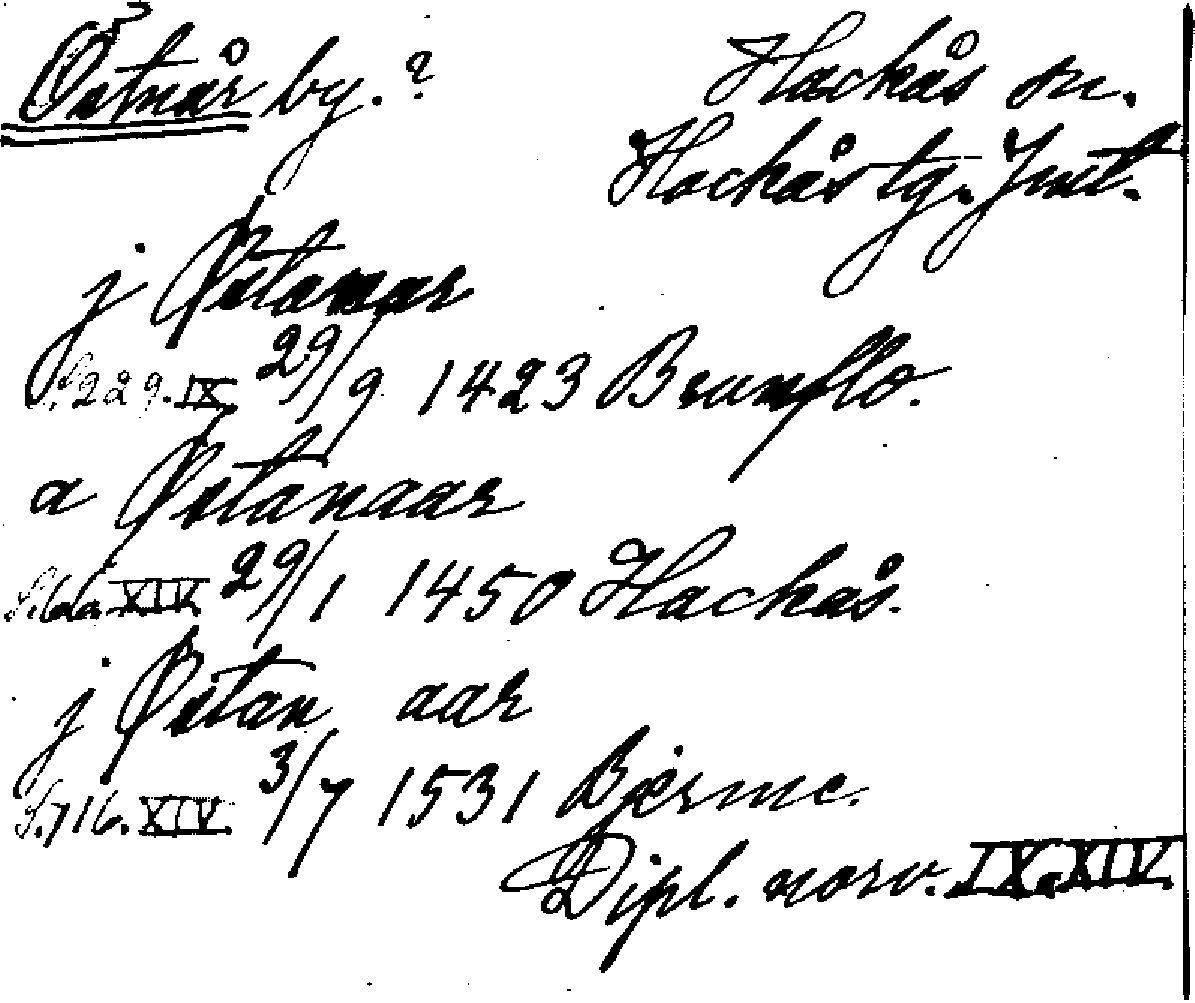 Östnår by.?
Hackås sn.
Hackås tg. Jmtl.
j Østamar
S. 229. IX 29/9 1423 Brunflo.
a Østanaar
XIV. 29/1 1450 Hackås.
j Østan aar
S. 716. XIV. 3/7 1531 Bjerme.
Dipl. norv. IX. XIV.